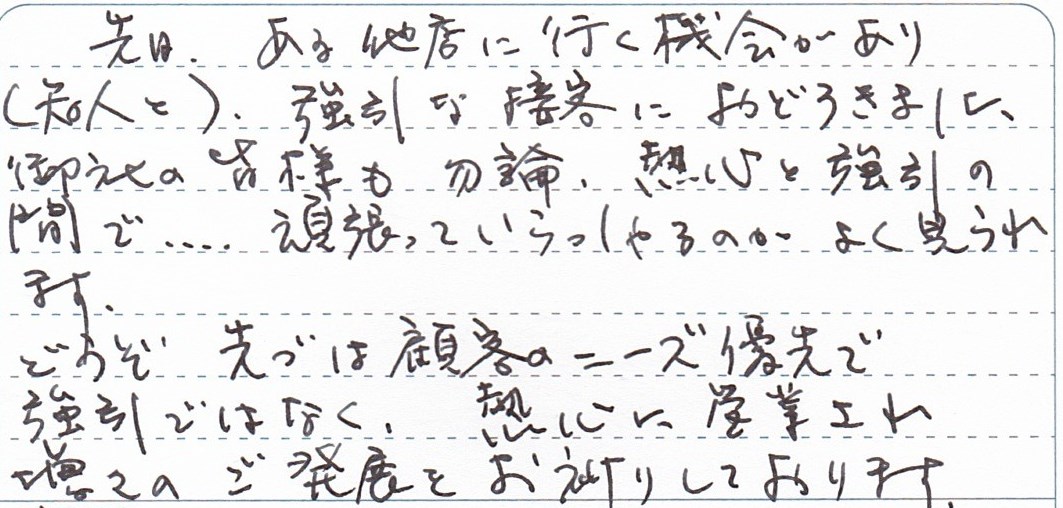 先日、ある他店に行く機会があり
(知人と)、強引な接客におどろきました、
御社の皆様も勿論、熱心と強引の
間で‥‥頑張っていらっしゃるのがよく見うけれ
ます。
どうぞ先づは顧客のニーズ優先で
強引ではなく、熱心に営業され
増々のご発展をお祈りしております。